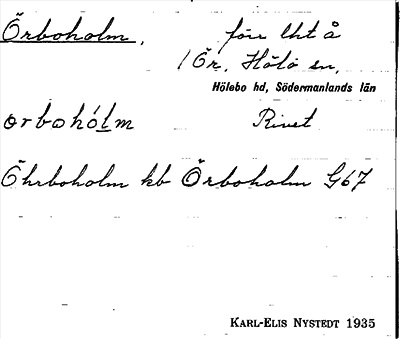 Örboholm. före lht å
/ Ör, Hölö sn,
Hölebo hd, Södermanlands län
ɵrbohól̲m Rivet
Öhrboholm kb Örboholm G67
KARL-ELIS NYSTEDT 1935